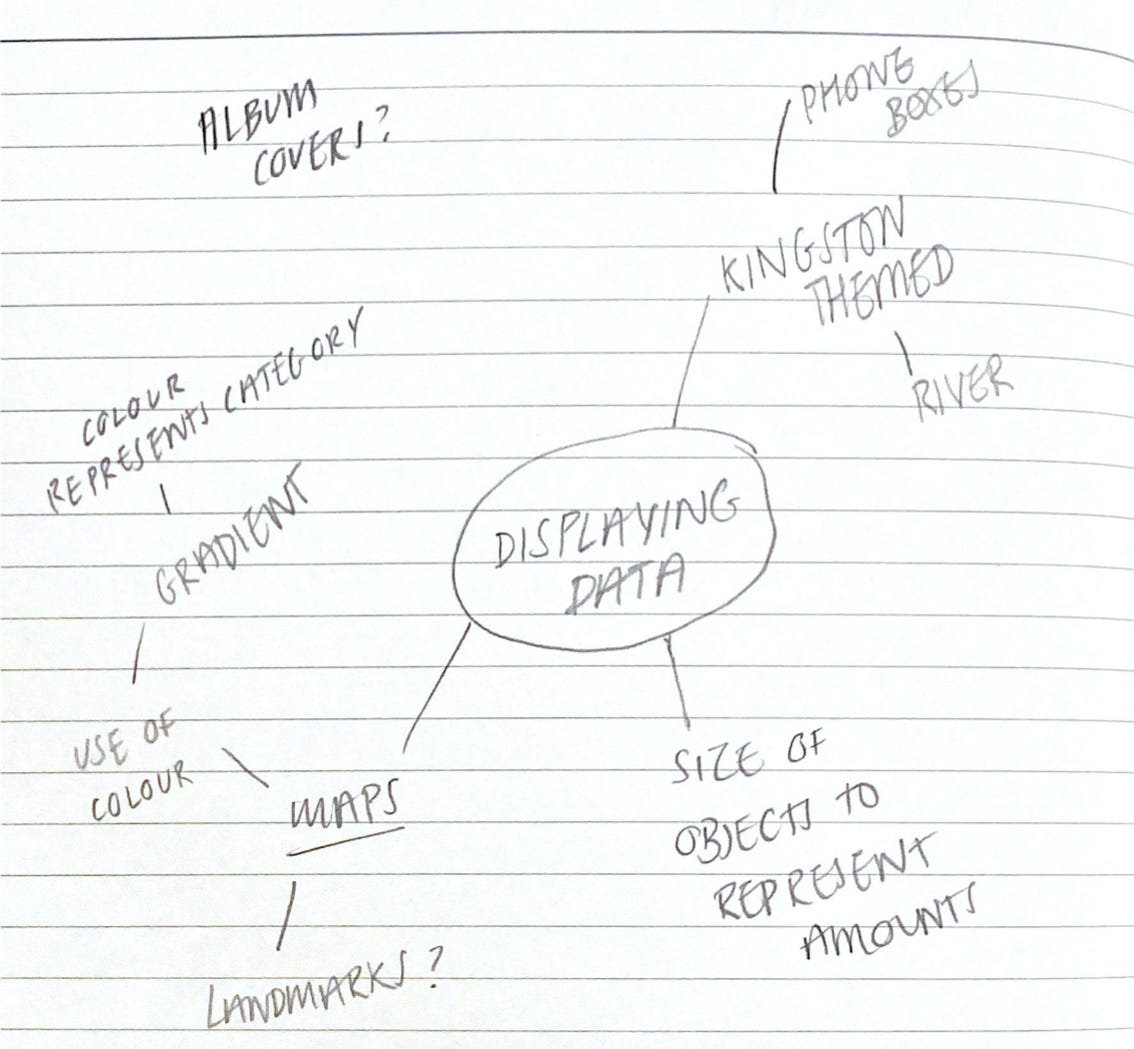 ALBUM
COVERS?
PHONE
BOXES
KINGSTON
THEMED
RIVER
COLOUR
REPRESENTS CATEGORY
GRADIENT
DISPLAYING
DATA
USE OF
COLOUR
MAPS
LANDMARKS?
SIZE OF
OBJECTS TO
REPRESENT
AMOUNTS